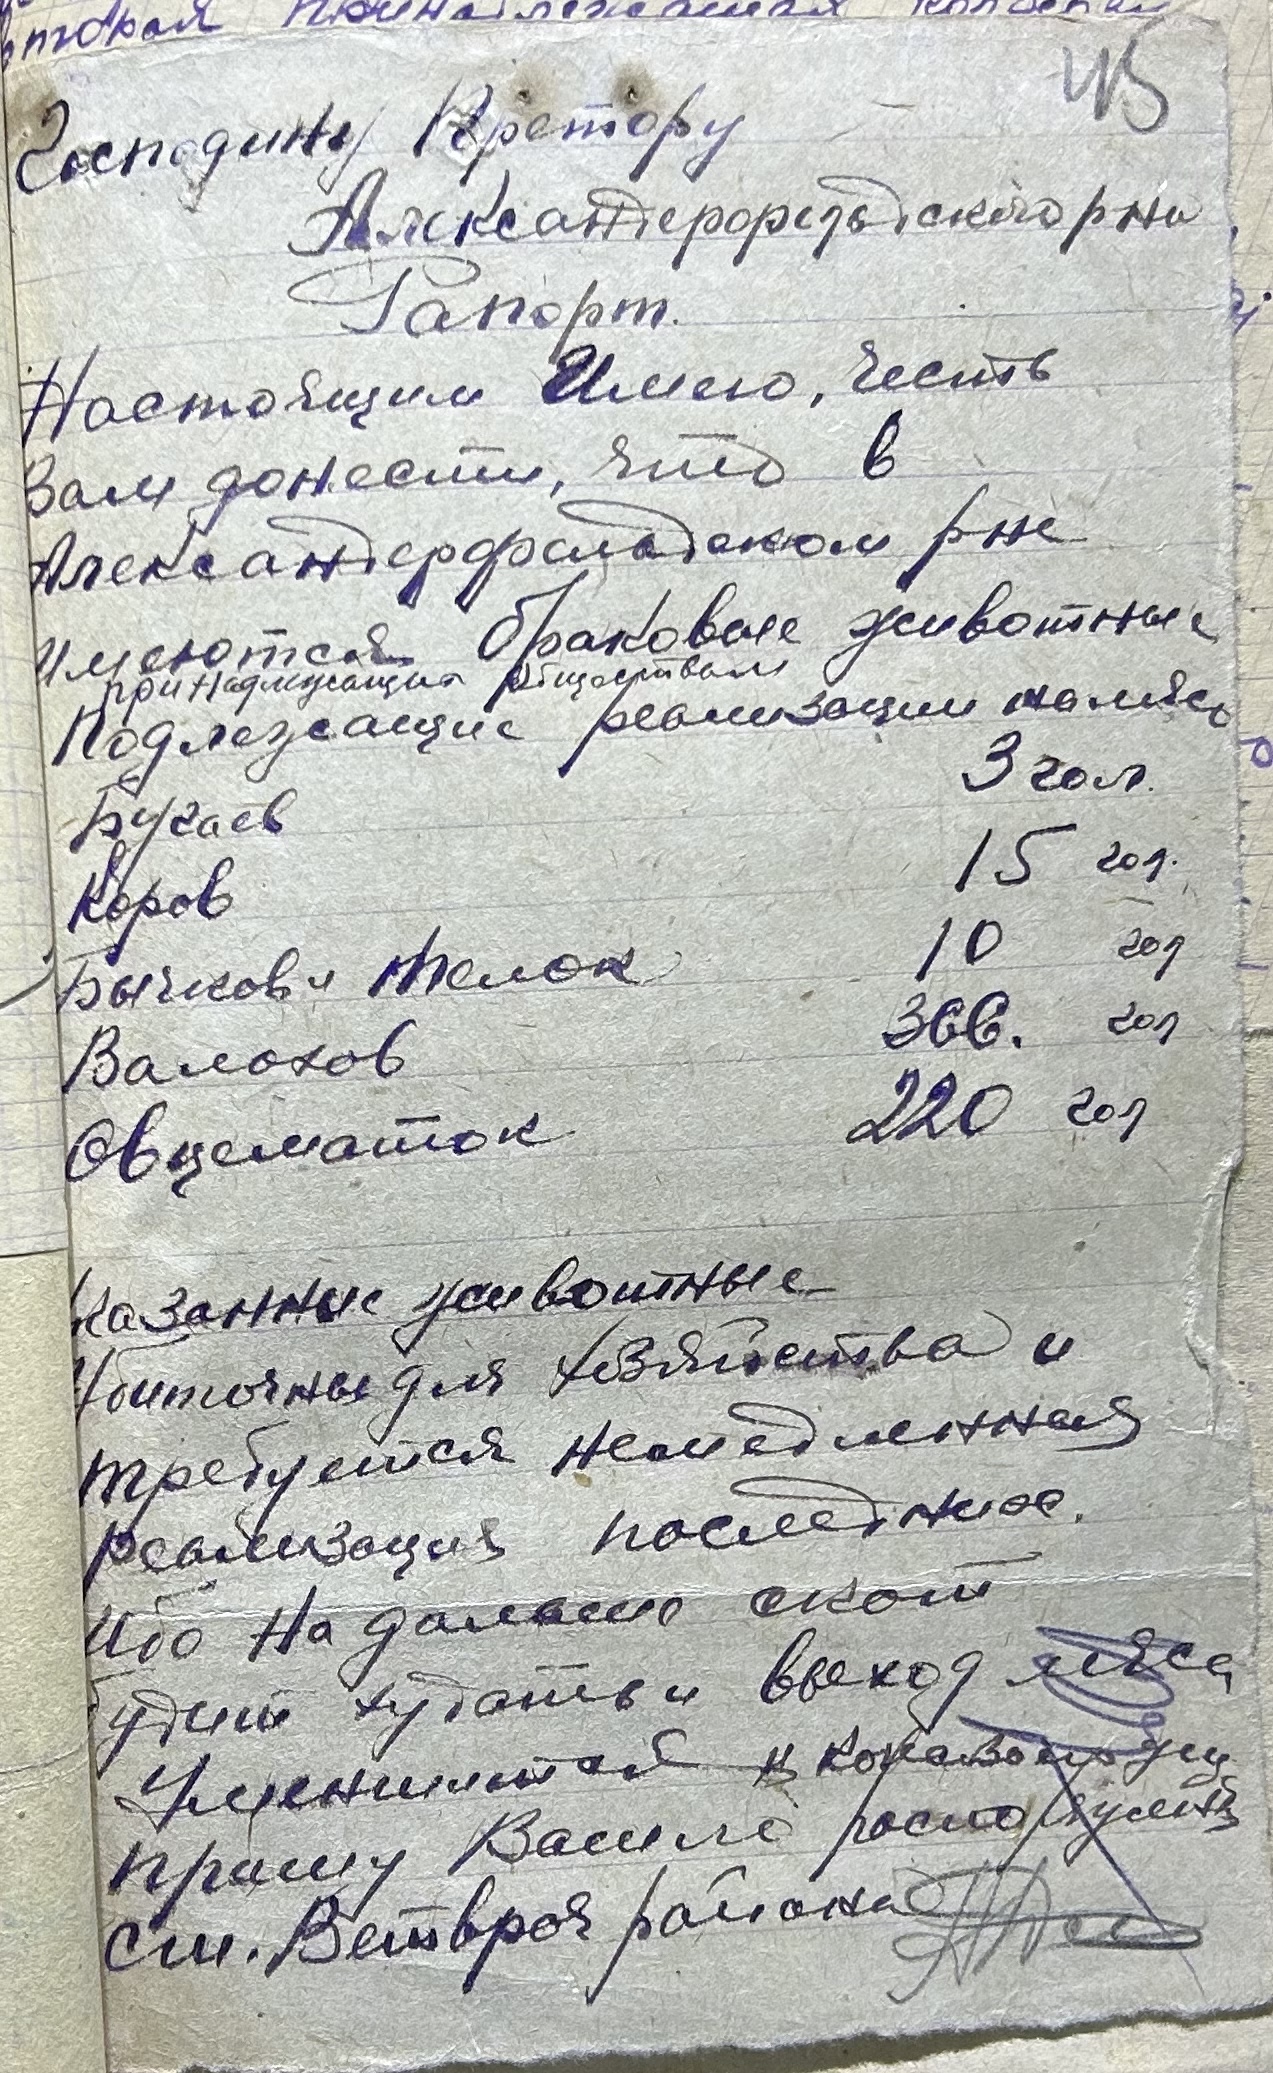 45
Господину Претору
Александерфельдского рна
Рапорт.
Настоящим Имею, честь
Вам донести, что в
Александерфельдском рне
имеются браковые животные
принадлежащия обществам
Подлежащие реализации на мясо
Бугаев 3 гол.
Коров 15 гол.
Бычков и телок 10 гол
Валахов 366. гол
Овцематок 220 гол
Указанные животные
Убиточные для хозяйства и
требуется немедленная
реализация последних.
Ибо На дальше скот
будит худать и выход мяса
Уменшится
прошу Вашего распоряжения
Ст. Ветврач района